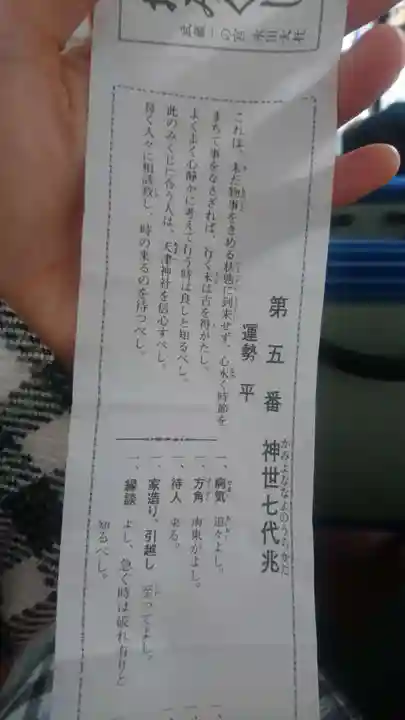 おみくじ
武蔵一の宮 氷川大社
第五番 神世七代兆
かみよななよのうらかた
運勢 平
これは、未だ物事をきめる状態に到来せず。心永く時節を
まちて事をなさざれば、行く末は吉を得がたし。
よくよく心静かに考えて行う時は良しと知るべし。
此のみくじに合う人は、天津神社を信心すべし。
良く人々に相談致し、時の来るのを待つべし。
一、病気 追々よし。
一、方角 南東がよし。
一、待人 来る。
一、家造り、引越し 至ってよし。
一、縁談 よし、急ぐ時は破れ有りと
知るべし。